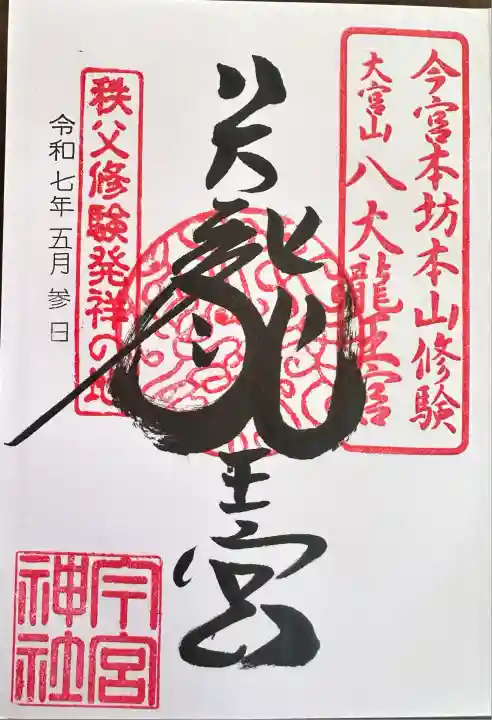 今宮本坊本山修験
大宮山 八大龍王宮
八大龍王宮
秩父修験発祥の地
令和七年 五月 参日
今宮
神社